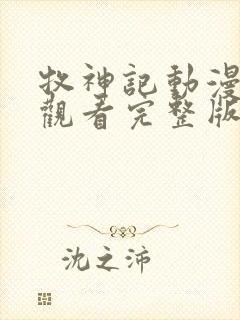 牧神記動漫
觀看完整版
沈之沛